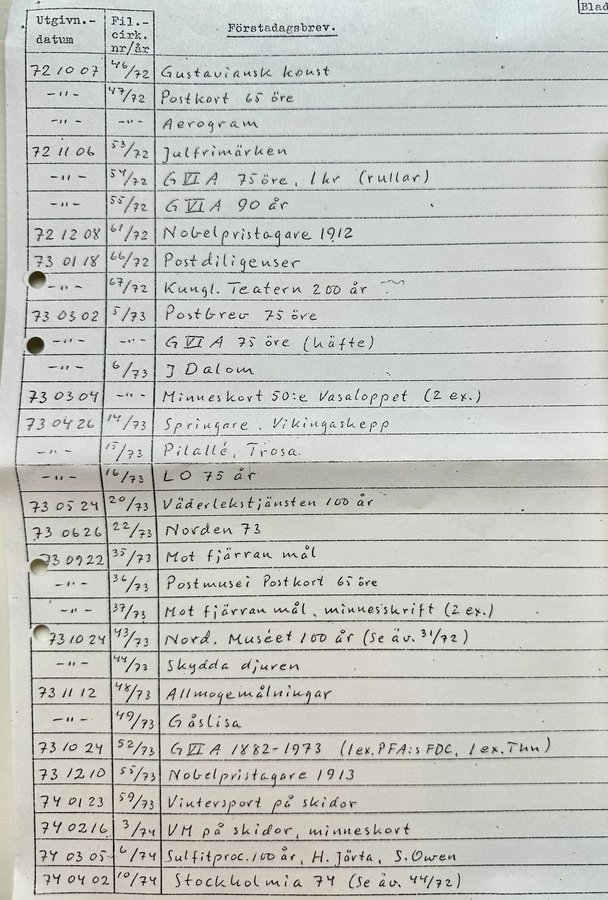 Blad
Utgivn.- datum Fil.- cirk. nr/år Förstadagsbrev.
72 10 07 46/72 Gustaviansk konst
-"- 47/72 Postkort 65 öre
-"- -"- Aerogram
72 11 06 53/72 Julfrimärken
-"- 54/72 G VI A 75 öre, 1 kr (rullar)
-"- 55/72 G VI A 90 år
72 12 08 61/72 Nobelpristagare 1912
73 01 18 66/72 Postdiligenser
-"- 67/72 Kungl. Teatern 200 år
73 03 02 5/73 Postbrev 75 öre
-"- -"- G VI A 75 öre (häfte)
6/73 J Dalom
73 03 04 -"- Minneskort 50:e Vasaloppet (2 ex.)
73 04 26 14/73 Springare. Vikingaskepp
-"- 15/73 Pilallé, Trosa
-"- 16/73 LO 75 år
73 05 24 20/73 Väderlekstjänsten 100 år
73 06 26 22/73 Norden 73
73 09 22 35/73 Mot fjärran mål
-"- 36/73 Postmusei Postkort 65 öre
-"- 37/73 Mot fjärran mål, minnesskrift (2 ex.)
73 10 24 43/73 Nord. Muséet 100 år (Se äv. 31/72)
-"- 44/73 Skydda djuren
73 11 12 48/73 Allmogemålningar
-"- 49/73 Gåslisa
73 10 24 52/73 G VI A 1882-1973 (1 ex. PFA:s FDC, 1 ex. Thn)
73 12 10 55/73 Nobelpristagare 1913
74 01 23 59/73 Vintersport på skidor
74 02 16 3/74 VM på skidor, minneskort
74 03 05 6/74 Sulfitproc. 100 år, H. Järta, S. Owen
74 04 02 10/74 Stockholmia 74 (Se äv. 44/72)